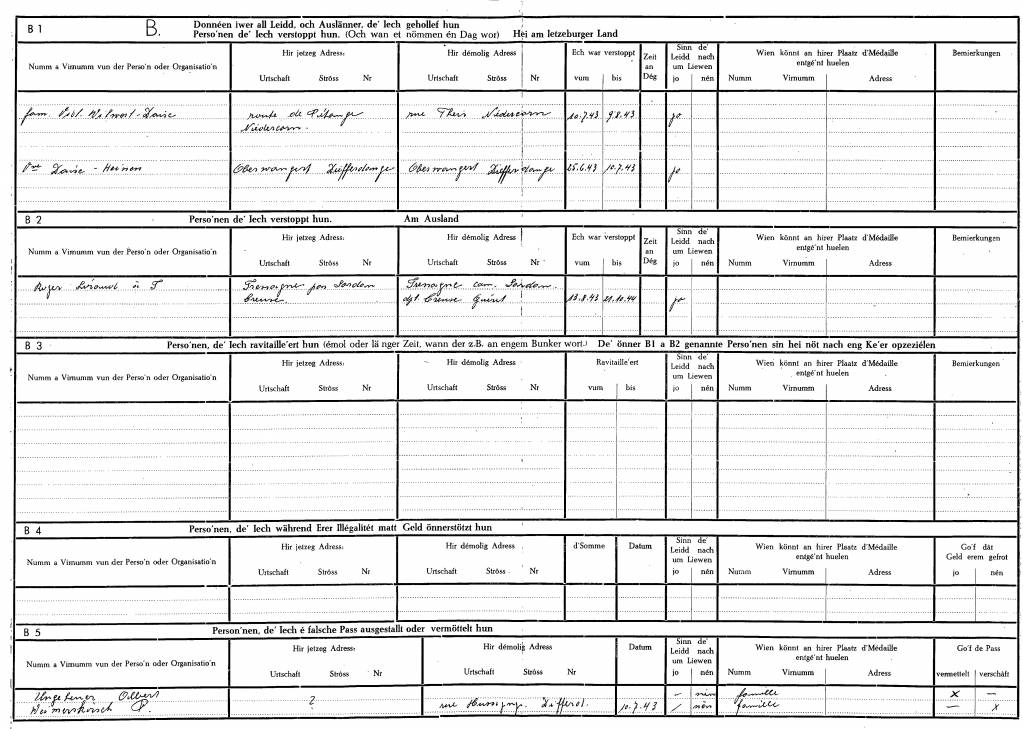 B 1 B. Donnéen iwer all Leidd, och Auslänner, de' Iech gehollef hun
Perso'nen de' Iech verstoppt hun. (Och wan et nömmen én Dag wor) Hei am letzeburger Land
Numm a Virnumm vun der Perso'n oder Organisatio'n
Hir jetzeg Adress: Urtschaft Ströss Nr
Hir démolig Adress Urtschaft Ströss Nr
Ech war verstoppt vum bis
Zeit an Dég
Sinn de' Leidd nach um Liewen jo nén
Wien könnt an hirer Plaatz d'Médaille entgé'nt huelen Numm Virnumm Adress
Bemierkungen
fam. route de Pétange rue Niedercorn 10.7.43 9.8.43 jo
Niedercorn.
- Heinen Differdange Differdange 25.6.43 10.7.43 jo
B 2 Perso'nen de' Iech verstoppt hun. Am Ausland
Numm a Virnumm vun der Perso'n oder Organisatio'n
Hir jetzeg Adress: Urtschaft Ströss Nr
Hir démolig Adress Urtschaft Ströss Nr
Ech war verstoppt vum bis
Zeit an Dég
Sinn de' Leidd nach um Liewen jo nén
Wien könnt an hirer Plaatz d'Médaille entgé'nt huelen Numm Virnumm Adress
Bemierkungen
Roger à
Creuse. dgt. Creuse 13.8.43 21.10.44 jo
B 3 Perso'nen, de' Iech ravitaille'ert hun (émol oder lä nger Zeit, wann der z.B. an engem Bunker wort.) De' önner B1 a B2 genannte Perso'nen sin hei nöt nach eng Ke'er opzeziélen
Numm a Virnumm vun der Perso'n oder Organisatio'n
Hir jetzeg Adress: Urtschaft Ströss Nr
Hir démolig Adress Urtschaft Ströss Nr
Ravitaille'ert vum bis
Sinn de' Leidd nach um Liewen jo nén
Wien könnt an hirer Plaatz d'Médaille entgé'nt huelen Numm Virnumm Adress
Bemierkungen
B 4 Perso'nen, de' Iech während Erer Illégalitét matt Geld önnerstötzt hun
Numm a Virnumm vun der Perso'n oder Organisatio'n
Hir jetzeg Adress: Urtschaft Ströss Nr
Hir démolig Adress Urtschaft Ströss Nr
d'Somme
Datum
Sinn de' Leidd nach um Liewen jo nén
Wien könnt an hirer Plaatz d'Médaille entgé'nt huelen Numm Virnumm Adress
Go'f dät Geld erem gefrot jo nén
B 5 Person'nen, de' Iech é falsche Pass ausgestallt oder vermöttelt hun
Numm a Virnumm vun der Perso'n oder Organisatio'n
Hir jetzeg Adress: Urtschaft Ströss Nr
Hir démolig Adress Urtschaft Ströss Nr
Datum
Sinn de' Leidd nach um Liewen jo nén
Wien könnt an hirer Plaatz d'Médaille entgé'nt huelen Numm Virnumm Adress
Go'f de Pass vermettelt verschäft
Ungeheuer Albert ? - nén famille x -
P. rue Differd. 10.7.43 / nén famille - x